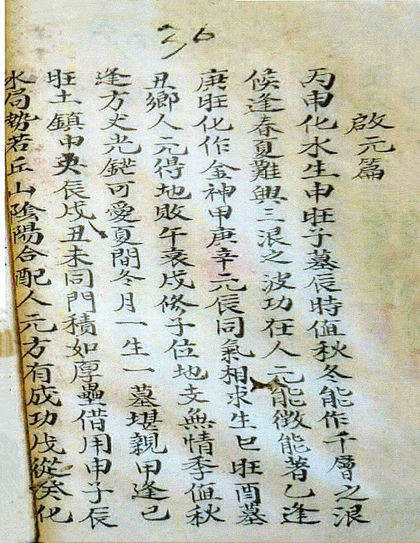 36
啟元篇
丙申化水生申旺子墓辰時值秋冬能作千層之浪
候逢春夏難興三浪之波功在人元能徵能著乙逢
庚旺化作金神甲庚辛元辰同氣相求生巳旺酉墓
丑鄉人元得地敗午衰戌修子位地支無情季值秋
逢方丈光鋩可愛夏間冬月一生一墓堪親甲逢己
旺土鎮中央辰戌丑未同門積如厚壘借用申子辰
水局勢若丘山陰陽合配人元方有成功戊從癸化